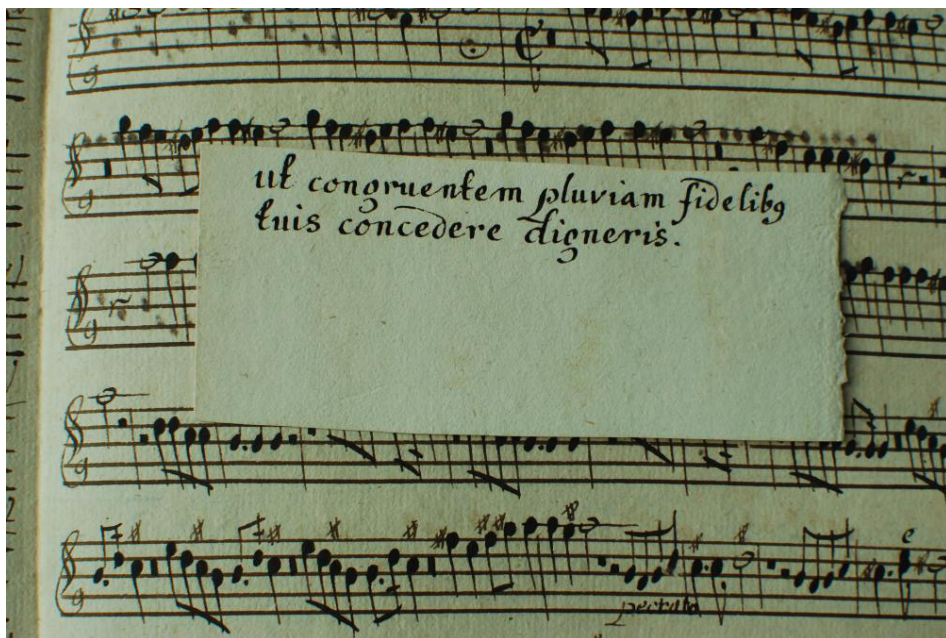 ut congruentem pluviam fidelibꝫ
tuis concedere digneris.